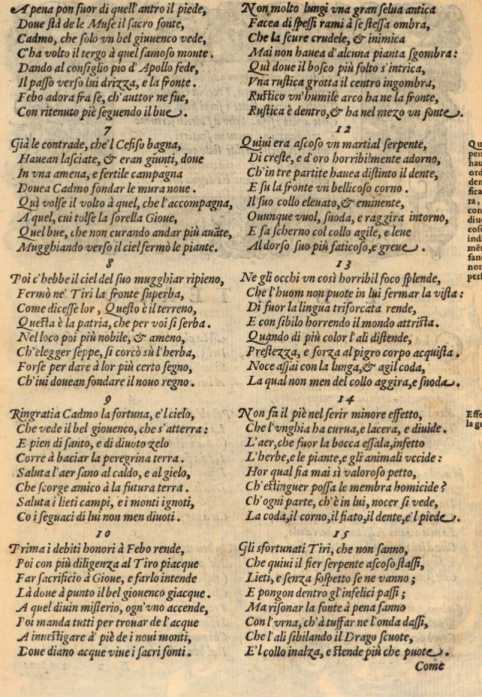 A pena pon fuor di quell'antro il piede,
Doue stà de le Muse il sacro fonte,
Cadmo, che solo vn bel giouenco vede,
C'ha volto il tergo à quel famoso monte.
Dando al consiglio pio d'Apollo fede,
Il passo verso lui drizza, e la fronte.
Febo adora fra se, ch'auttor ne fue,
Con ritenuto piè seguendo il bue.
7
Già le contrade, che'l Cefiso bagna,
Hauean lasciate, & eran giunti, doue
In vna amena, e fertile campagna
Douea Cadmo fondar le mura noue.
Quì volse il volto à quel, che l'accompagna,
A quel, cui tolse la sorella Gioue,
Quel bue, che non curando andar più auāte,
Mugghiando verso il ciel fermò le piante.
8
Poi c'hebbe il ciel del suo mugghiar ripieno,
Fermò ne' Tiri la fronte superba,
Come dicesse lor, Questo è il terreno,
Questa è la patria, che per voi si serba.
Nel loco poi più nobile, & ameno,
Ch'elegger seppe, si corcò sù l'herba,
Forse per dare à lor più certo segno,
Ch'iui douean fondare il nouo regno.
9
Ringratia Cadmo la fortuna, e'l cielo,
Che vede il bel giouenco, che s'atterra:
E pien di santo, e di diuoto zelo
Corre à baciar la peregrina terra.
Saluta l'aer sano al caldo, e al gielo,
Che scorge amico à la futura terra.
Saluta i lieti campi, e i monti ignoti,
Co i seguaci di lui non men diuoti.
10
Prima i debiti honori à Febo rende,
Poi con più diligenza al Tiro piacque
Far sacrificio à Gioue, e farlo intende
Là doue à punto il bel giouenco giacque.
A quel diuin misterio, ogn'vno accende,
Poi manda tutti per trouar de l'acque
A inuestigare à piè de i noui monti,
Doue diano acque viue i sacri fonti.
Non molto lungi vna gran selua antica
Facea di spessi rami à se stessa ombra,
Che la scure crudele, & inimica
Mai non hauea d'alcuna pianta sgombra:
Quì doue il bosco più folto s'intrica,
Vna rustica grotta il centro ingombra,
Rustico vn'humile arco ha ne la fronte,
Rustica è dentro, & ha nel mezo vn fonte.
12
Quiui era ascoso vn martial serpente,
Di creste, e d'oro horribilmente adorno,
Ch'in tre partite hauea distinto il dente,
E su la fronte vn bellicoso corno.
Il suo collo eleuato, & eminente,
Ouunque vuol, snoda, e raggira intorno,
E fa scherno col collo agile, e leue
Al dorso suo più faticoso, e greue.
13
Ne gli occhi vn così horribil foco splende,
Che l'huom non puote in lui fermar la vista:
Di fuor la lingua triforcata rende,
E con sibilo horrendo il mondo attrista.
Quando di più color l'ali distende,
Prestezza, e forza al pigro corpo acquista.
Noce assai con la lunga, & agil coda,
La qual non men del collo aggira, e snoda.
14
Non fa il piè nel ferir minore effetto,
Che l'vnghia ha curua, e lacera, e diuide.
L'aer, che fuor la bocca essala, infetto
L'herbe, e le piante, e gli animali vccide:
Hor qual fia mai sì valoroso petto,
Ch'estinguer possa le membra homicide?
Ch'ogni parte, ch'è in lui, nocer si vede,
La coda, il corno, il fiato, il dente, e'l piede.
15
Gli sfortunati Tiri, che non sanno,
Che quiui il fier serpente ascoso stassi,
Lieti, e senza sospetto se ne vanno;
E pongon dentro gl'infelici passi;
Ma risonar la fonte à pena fanno
Con l'vrna, ch'à tuffar ne l'onda dassi,
Che l'ali sibilando il Drago scuote,
E'l collo inalza, e stende più che puote.
Come